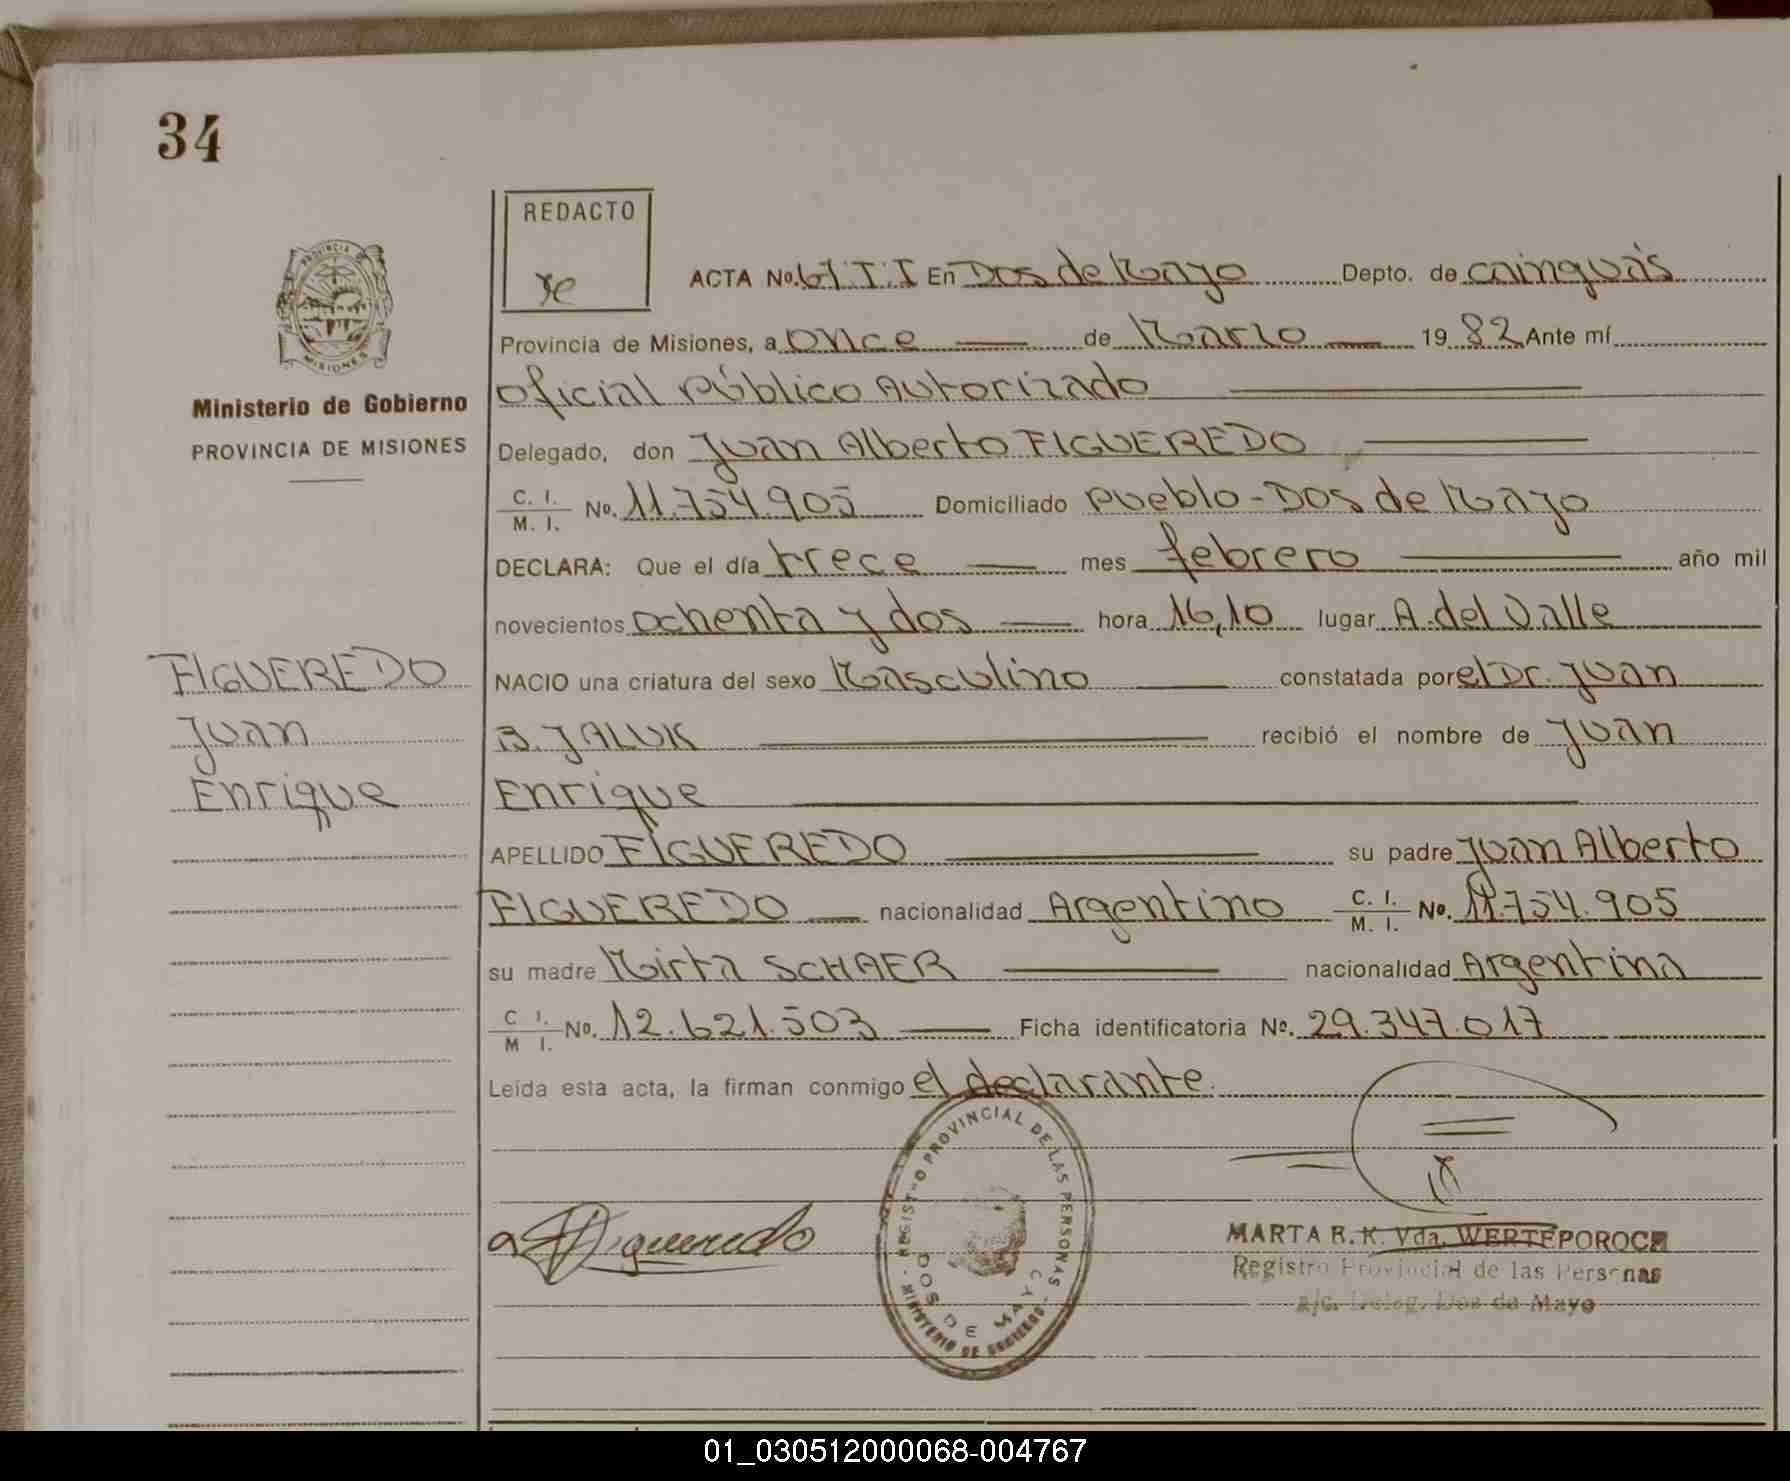 34
REDACTO
PROVINCIA DE
MISIONES
ACTA No. 67.T.I En Dos de Mayo Depto. de cainguás
Provincia de Misiones, a once de Marzo 1982 Ante mí
Ministerio de Gobierno
PROVINCIA DE MISIONES
Oficial Público Autorizado
Delegado, don Juan Alberto FIGUEREDO
C. I. M. I. No. 11.754.905 Domiciliado Pueblo-Dos de Mayo
DECLARA: Que el día trece mes febrero año mil
novecientos ochenta y dos hora 16,10 lugar A. del Valle
FIGUEREDO
Juan
Enrique
NACIO una criatura del sexo Masculino constatada por el Dr. Juan
B. JALUK recibió el nombre de Juan
Enrique
APELLIDO FIGUEREDO su padre Juan Alberto
FIGUEREDO nacionalidad Argentino C. I. M. I. No. 11.754.905
su madre Mirta SCHAER nacionalidad Argentina
C I. M I. No. 12.621.503 Ficha identificatoria No. 29.347.017
Leída esta acta, la firman conmigo el declarante.
REGISTRO PROVINCIAL DE LAS PERSONAS
DOS DE MAYO
MINISTERIO DE GOBIERNO
Figueredo
MARTA R. K. Vda. WERTEPOROCH
Registro Provincial de las Personas
a/c. Deleg. Dos de Mayo
01_030512000068-004767